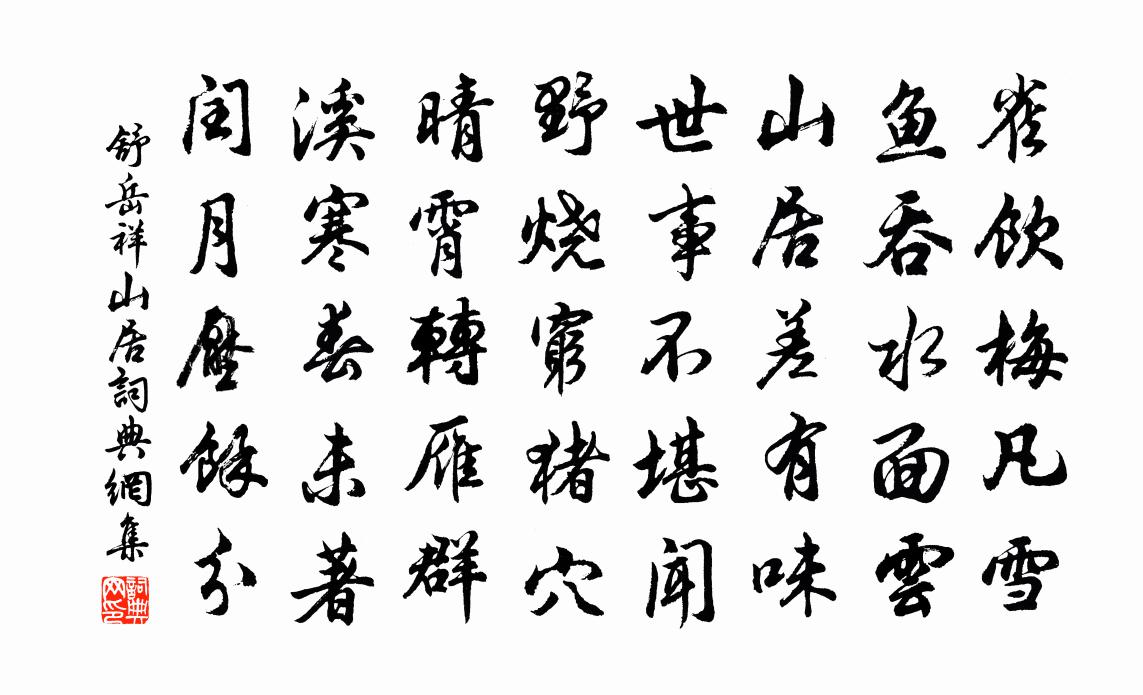 雀飲梅凡雪
魚吞水面雲
山居差有味
世事不堪聞
野燒窮猪穴
晴霄轉雁群
溪寒春未著
閏月壓餘分
舒岳祥山居詞典網集
詞典網印